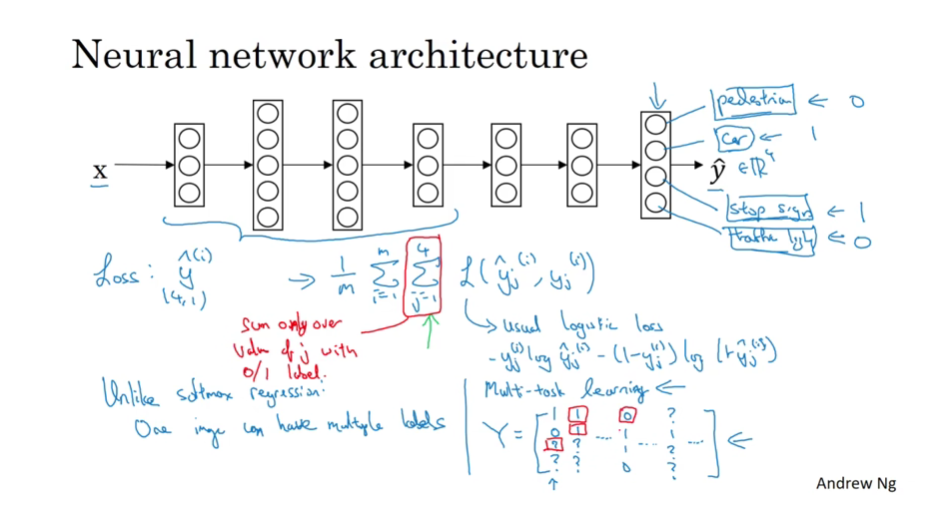 Neural network architecture
pedestrian ← 0
car ← 1
x
ŷ ∈ ℝ⁴
stop sign ← 1
traffic light ← 0
Loss: ŷ^(i) → 1/m Σ_{i=1}^{m} Σ_{j=1}^{4} ℒ(ŷ_j^(i), y_j^(i))
(4,1)
sum only over
value of j with
0/1 label.
usual logistic loss
- y_j^(i) log ŷ_j^(i) - (1-y_j^(i)) log (1-ŷ_j^(i))
Unlike softmax regression:
One image can have multiple labels
Multi-task learning ←
Y = [
1 1 0 ?
0 1 ... 1 1 ...
? ? 1 ... ? ...
? ? 0 ?
] ←
Andrew Ng